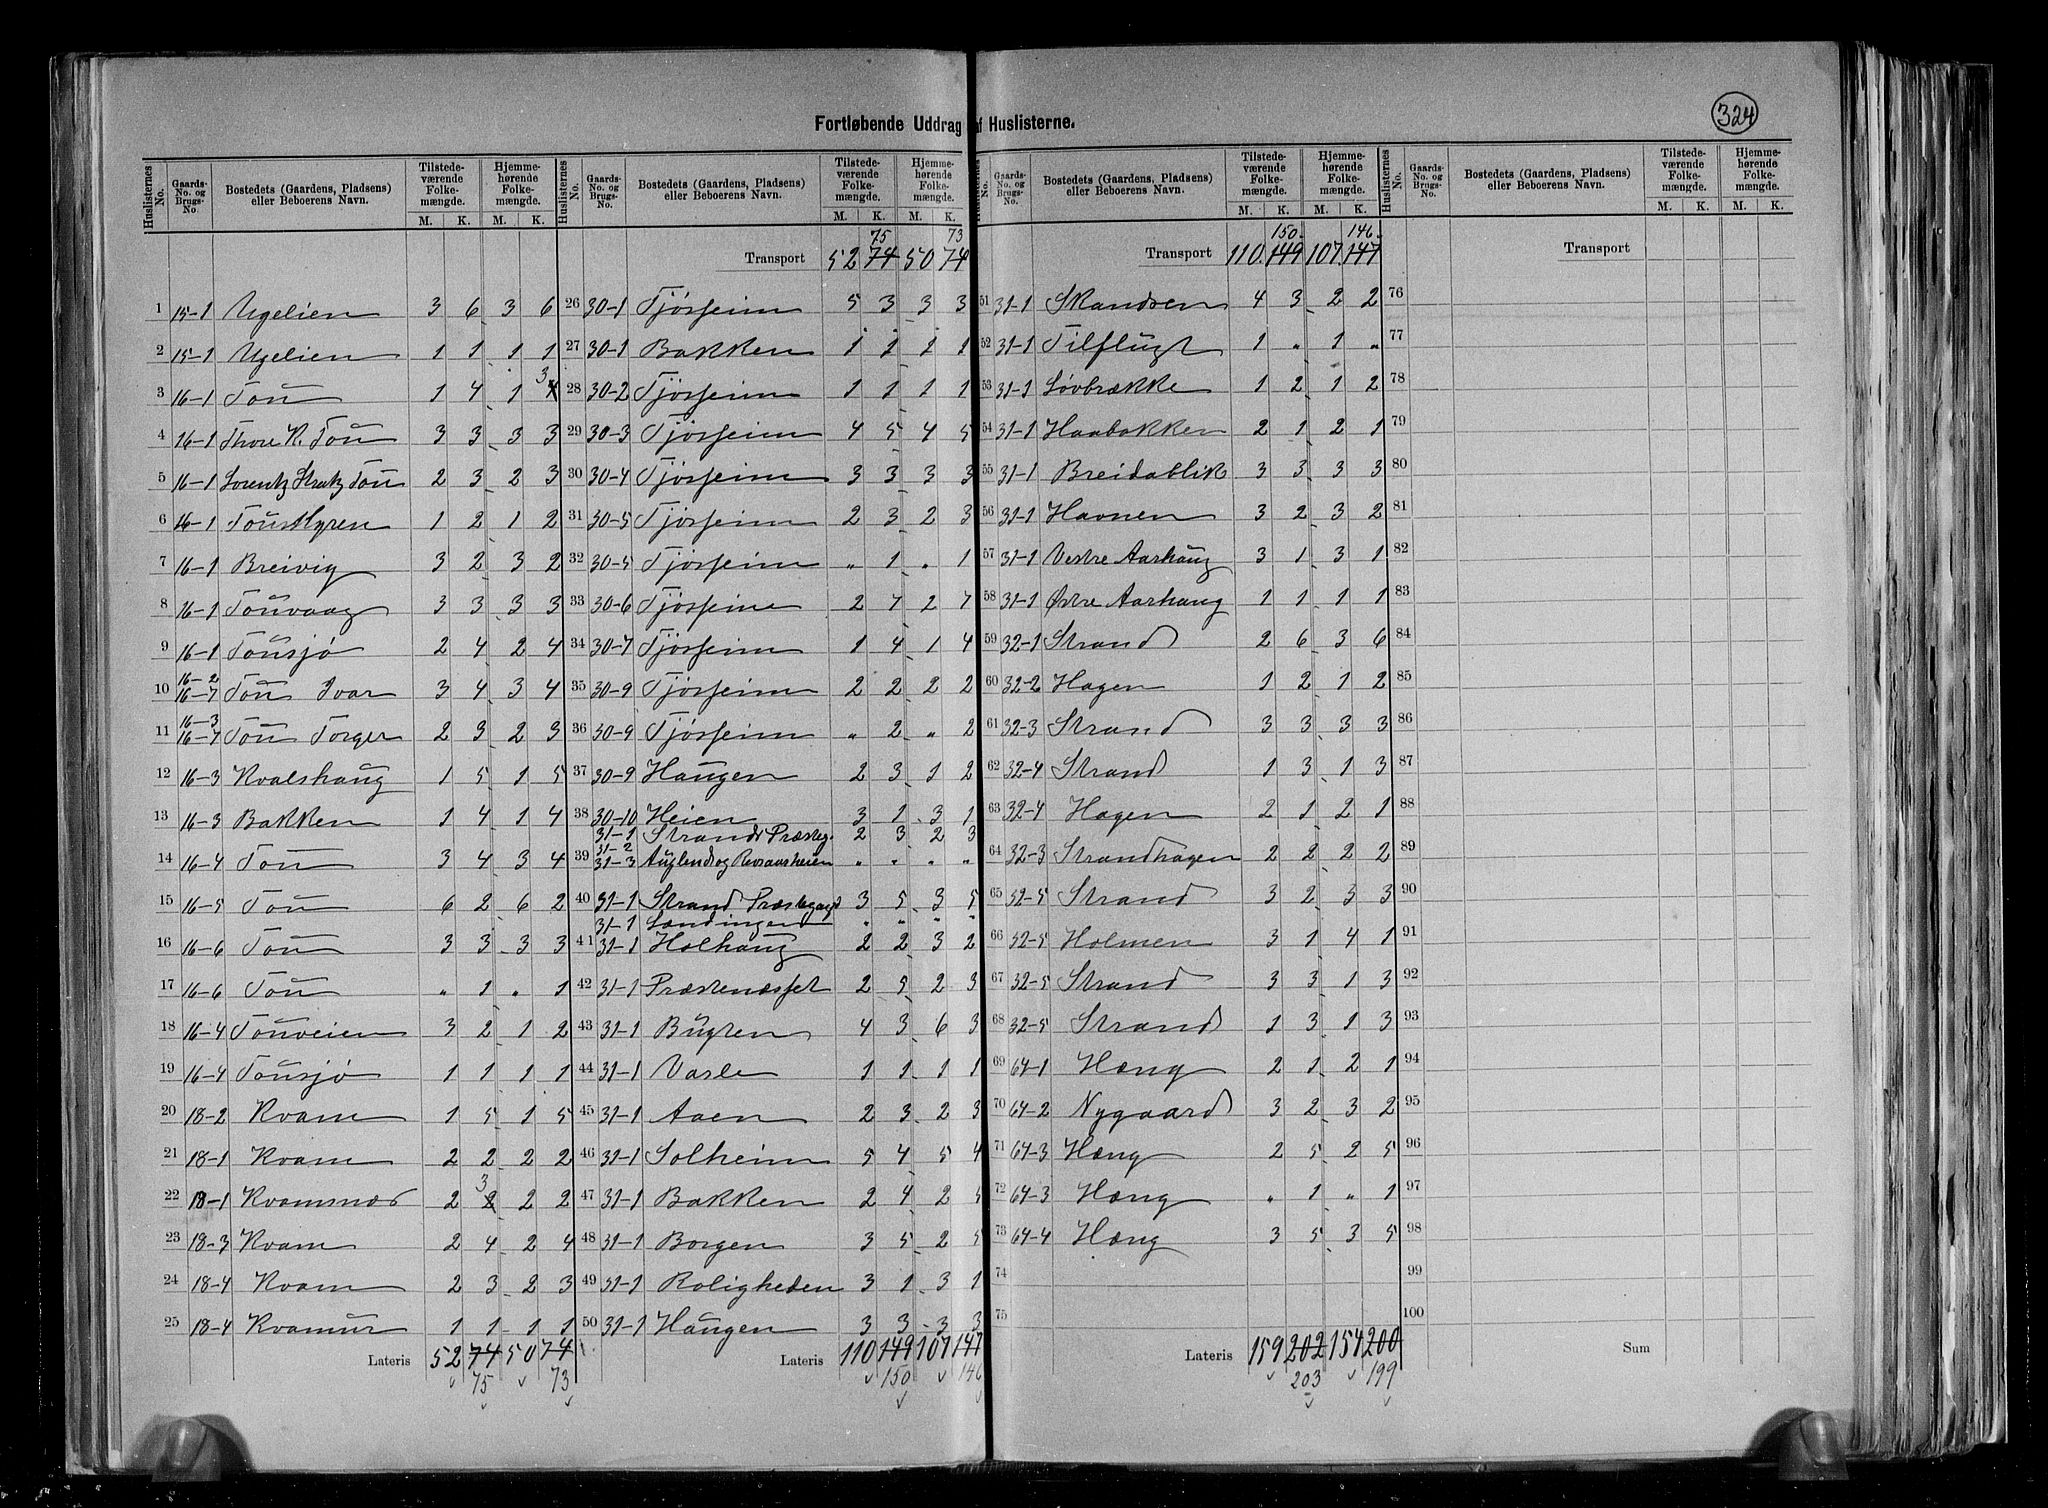 324
Fortløbende Uddrag af Huslisterne.
Huslisternes No. Gaards-No. og Brugs-No. Bostedets (Gaardens, Pladsens) eller Beboerens Navn. Tilstede-værende Folke-mængde. M. K. Hjemme-hørende Folke-mængde. M. K.
1 15-1 Ugelien 3 6 3 6
2 15-1 Ugelien 1 1 1 1
3 16-1 Tou 1 4 1 4 3
4 16-1 Thore K. Tou 3 3 3 3
5 16-1 Lorentz Kratz Tou 2 3 2 3
6 16-1 Tou Myren 1 2 1 2
7 16-1 Breivig 3 2 3 2
8 16-1 Touvaag 3 3 3 3
9 16-1 Tousjø 2 4 2 4
10 16-2 16-7 Tou Ivar 3 4 3 4
11 16-3 16-7 Tou Torger 2 3 2 3
12 16-3 Kvalshaug 1 5 1 5
13 16-3 Bakken 1 4 1 4
14 16-4 Tou 3 4 3 4
15 16-5 Tou 6 2 6 2
16 16-6 Tou 3 3 3 3
17 16-6 Tou " 1 " 1
18 16-4 Touveien 3 2 1 2
19 16-4 Tousjø 1 1 1 1
20 18-2 Kvam 1 5 1 5
21 18-1 Kvam 2 2 2 2
22 18-1 Kvamsnæs 2 2 3 2 2
23 18-3 Kvam 2 4 2 4
24 18-4 Kvam 2 3 2 3
25 18-4 Kvamur 1 1 1 1
Lateris 52 74 50 74
75 73
Huslisternes No. Gaards-No. og Brugs-No. Bostedets (Gaardens, Pladsens) eller Beboerens Navn. Tilstede-værende Folke-mængde. M. K. Hjemme-hørende Folke-mængde. M. K.
75 73
Transport 52 74 50 74
26 30-1 Tjösseim 5 3 3 3
27 30-1 Bakken 1 1 1 1
28 30-2 Tjösseim 1 1 1 1
29 30-3 Tjösseim 4 5 4 5
30 30-4 Tjösseim 3 3 3 3
31 30-5 Tjösseim 2 3 2 3
32 30-5 Tjösseim " 1 " 1
33 30-6 Tjösseim 2 7 2 7
34 30-7 Tjösseim 1 4 1 4
35 30-9 Tjösseim 2 2 2 2
36 30-9 Tjösseim " 2 " 2
37 30-9 Haugen 2 3 1 2
38 30-10 Heien 3 1 3 1
31-1 Strands Præsteg. 2 3 2 3
39 31-2 31-3 Auglend og Revaasheien " " " "
40 31-1 Strand Præstegagd 3 5 3 5
31-1 Landingen " " " "
41 31-1 Holhaug 2 2 3 2
42 31-1 Præstenæsset 2 5 2 3
43 31-1 Bugten 4 3 6 3
44 31-1 Vasle 1 1 1 1
45 31-1 Aaen 2 3 2 3
46 31-1 Solheim 5 4 5 4
47 31-1 Bakken 2 4 2 5
48 31-1 Borgen 3 5 2 5
49 31-1 Roligheden 3 1 3 1
50 31-1 Haugen 3 3 3 3
Lateris 110 149 107 147
150 146
Huslisternes No. Bostedets (Gaardens, Pladsens) eller Beboerens Navn. Tilstede-værende Folke-mængde. M. K. Hjemme-hørende Folke-mængde. M. K.
150. 146.
Transport 110. 149 107. 147
51 31-1 Skandsen 4 3 2 2
52 31-1 Tilflugt 1 " 1 "
53 31-1 Løvbrække 1 2 1 2
54 31-1 Haabakken 2 1 2 1
55 31-1 Breidablik 3 3 3 3
56 31-1 Havnen 3 2 3 2
57 31-1 Vestre Aarhaug 3 1 3 1
58 31-1 Østre Aarhaug 1 1 1 1
59 32-1 Strand 2 6 3 6
60 32-2 Hagen 1 2 1 2
61 32-3 Strand 3 3 3 3
62 32-4 Strand 1 3 1 3
63 32-4 Hagen 2 1 2 1
64 32-3 Strandhagen 2 2 2 2
65 32-5 Strand 3 2 3 3
66 32-5 Holmen 3 1 4 1
67 32-5 Strand 3 3 1 3
68 32-5 Strand 1 3 1 3
69 64-1 Hæng 2 1 2 1
70 64-2 Nygaard 3 2 3 2
71 64-3 Hæng 2 5 2 5
72 64-3 Hæng " 1 " 1
73 64-4 Hæng 3 5 3 5
74
75
Lateris 159 202 154 200
203 199
Huslisternes No. Gaards-No. og Brugs-No. Bostedets (Gaardens, Pladsens) eller Beboerens Navn. Tilstede-værende Folke-mængde. M. K. Hjemme-hørende Folke-mængde. M. K.
Transport
76
77
78
79
80
81
82
83
84
85
86
87
88
89
90
91
92
93
94
95
96
97
98
99
100
Sum